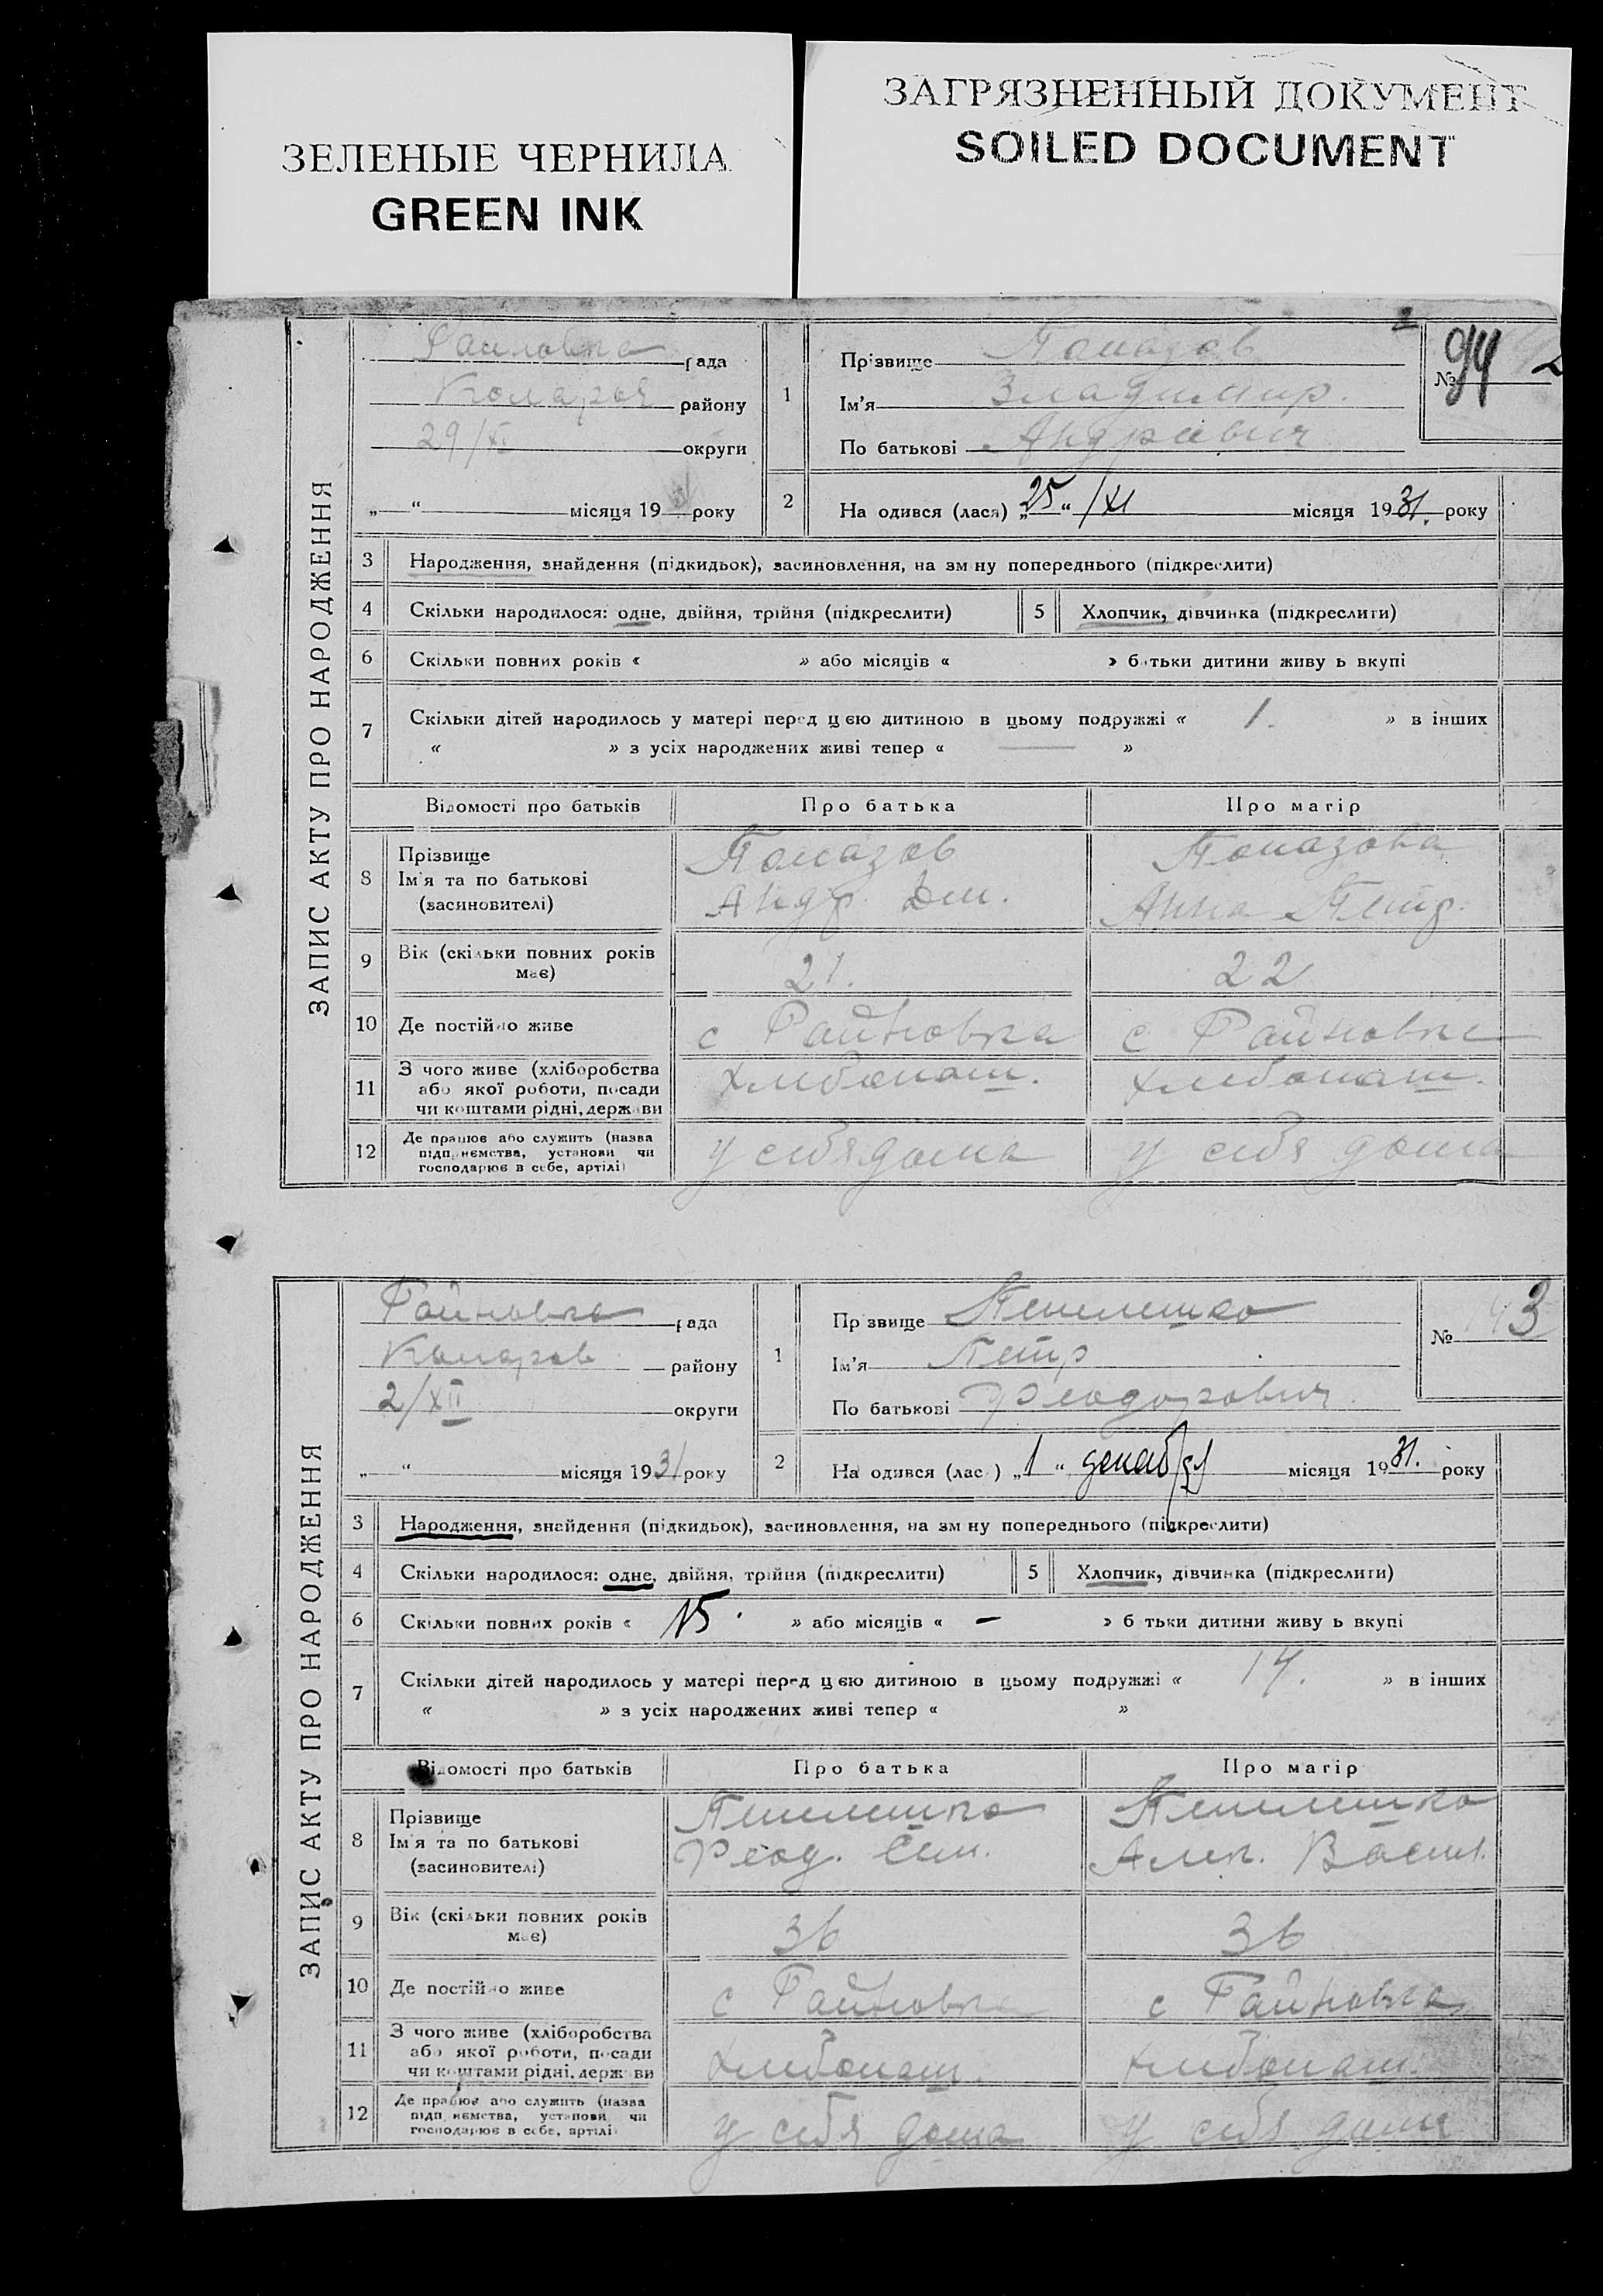 ЗЕЛЕНЫЕ ЧЕРНИЛА
GREEN INK
ЗАГРЯЗНЕННЫЙ ДОКУМЕНТ
SOILED DOCUMENT
ЗАПИС АКТУ ПРО НАРОДЖЕННЯ
рада
району
29/XI округи
„ “ місяця 19 року
1
Прізвище
Ім'я Владимир.
По батькові
№ 94
2
На одився (лася) „25“ /XI місяця 1931. року
3 Народження, знайдення (підкидьок), засиновлення, на зм ну попереднього (підкреслити)
4 Скільки народилося: одне, двійня, трійня (підкреслити) 5 Хлопчик, дівчинка (підкреслити)
6 Скільки повних років « » або місяців « » б тьки дитини живу ь вкупі
7 Скільки дітей народилось у матері перед цією дитиною в цьому подружжі « 1. » в інших
« » з усіх народжених живі тепер « — »
Відомості про батьків Про батька Про матір
8 Прізвище
Ім'я та по батькові Андр. Дм. Анна Петр.
(засиновителі)
9 Вік (скільки повних років має) 21. 22
10 Де постійно живе с Райновка с Райновка
11 З чого живе (хліборобства
або якої роботи, посади
чи коштами рідні, держави
12 Де працює або служить (назва у себя дома у себя дома
підприємства, установи чи
господарює в себе, артілі)
ЗАПИС АКТУ ПРО НАРОДЖЕННЯ
Райновка рада
району
2/XII округи
„ “ місяця 1931 року
1
Пр звище
Ім'я Петр
По батькові Феодорович
№ 3
2
На одився (лас ) „1“ декабря місяця 1931. року
3 Народження, знайдення (підкидьок), засиновлення, на зм ну попереднього (підкреслити)
4 Скільки народилося: одне, двійня, трійня (підкреслити) 5 Хлопчик, дівчинка (підкреслити)
6 Скільки повних років « 15. » або місяців « – » б тьки дитини живу ь вкупі
7 Скільки дітей народилось у матері перед цією дитиною в цьому подружжі « 14. » в інших
« » з усіх народжених живі тепер « »
Відомості про батьків Про батька Про матір
8 Прізвище
Ім'я та по батькові Феод. Сим. Алек. Васил.
(засиновителі)
9 Вік (скільки повних років має) 36 36
10 Де постійно живе с Райновка с Райновка
11 З чого живе (хліборобства
або якої роботи, посади
чи коштами рідні, держави
12 Де працює або служить (назва у себя дома у себя дома
підприємства, установи чи
господарює в себе, артілі)